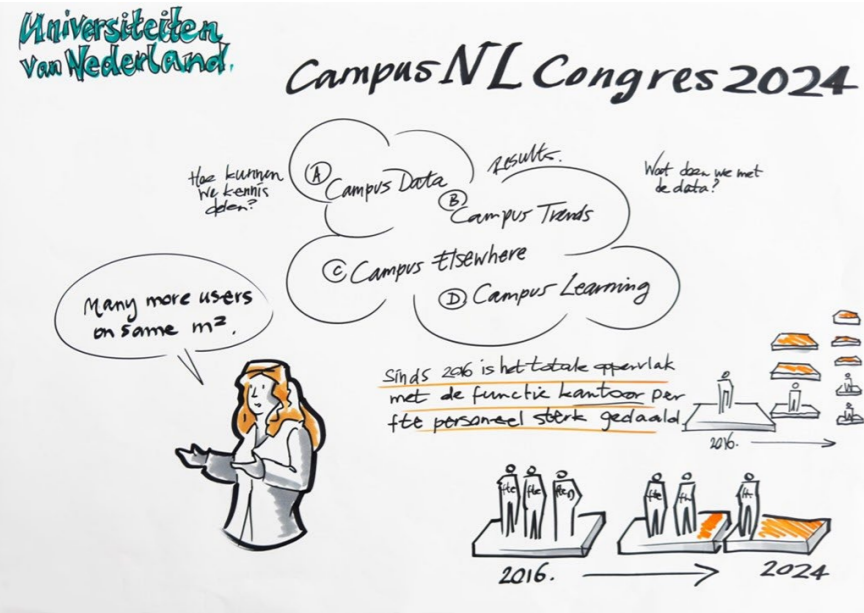 Universiteiten
van Nederland.
Campus NL Congres 2024
Hoe kunnen
we kennis
delen?
A Campus Data
results.
B Campus Trends
Wat doen we met
de data?
C Campus Elsewhere
D Campus Learning
Many more users
on same m².
Sinds 2016 is het totale oppervlak
met de functie kantoor per
fte personeel sterk gedaald
2016.
fte
fte
fte
fte
2016.
2024